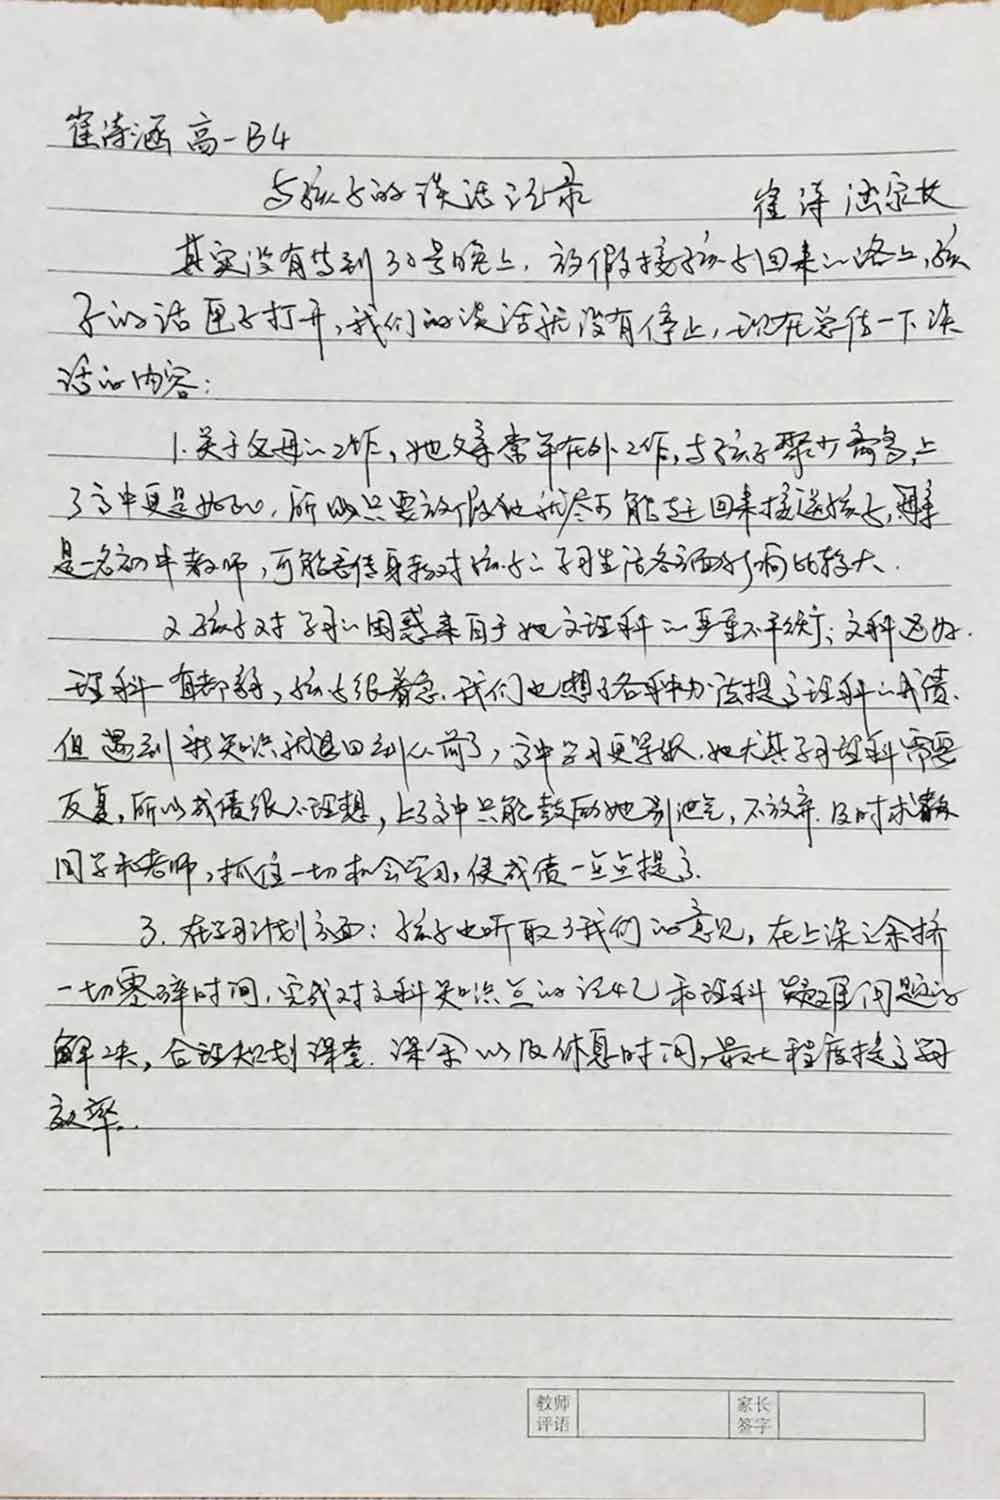 崔诗涵 高一B4
与孩子的谈话记录 崔诗涵家长
其实没有等到30号晚上,放假接孩子回来的路上,孩
子的话匣子打开,我们的谈话就没有停止,现在总结一下谈
话的内容:
1.关于父母的工作,她父亲常年在外工作,与孩子聚少离多,上
了高中更是如此,所以只要放假他就尽可能赶回来接送孩子,
是一名初中教师,可能言传身教对孩子的学习生活各方面影响比较大.
2.孩子对学习的困惑来自于她文理科的严重不平衡;文科还好.
理科一直都弱,孩子很着急.我们也想了各种办法提高理科的成绩.
但遇到新知识就退回到从前了,高中学习更紧张.她尤其学习理科需要
反复,所以成绩很不理想,上了高中只能鼓励她别泄气,不放弃.及时求教
同学和老师,抓住一切机会学习,使成绩一点点提高.
3.在学习计划方面:孩子也听取了我们的意见,在上课之余挤
一切零碎时间,完成对文科知识点的记忆和理科疑难问题的
解决,合理规划课堂.课余以及休息时间,最大程度提高学习
效率.
教师评语 家长签字